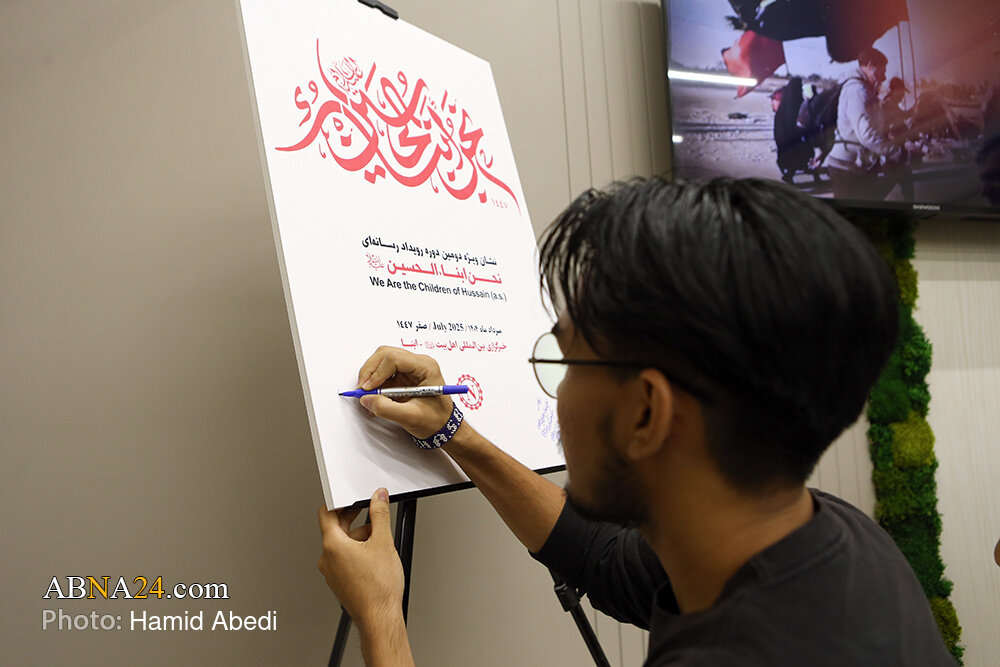 نحن أبناء الحسین
علیه‌السلام
۱٤٤٧
نشان ویژه دومین دوره رویداد رسانه‌ای
نحن ابناء الحسین
We Are the Children of Hussain (a.s.)
مرداد ماه ۱۴۰۴ / July 2025 / صفر ۱٤٤٧
خبرگزاری بین‌المللی اهل بیت - ابنا
ABNA24.com
Photo: Hamid Abedi